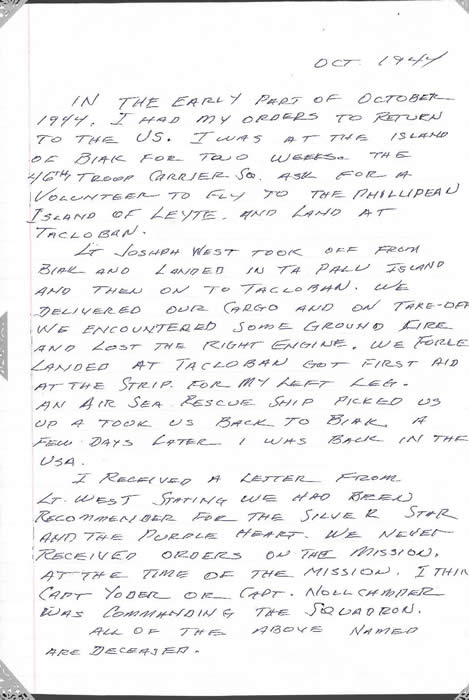 OCT. 1944
IN THE EARLY PART OF OCTOBER
1944, I HAD MY ORDERS TO RETURN
TO THE US. I WAS AT THE ISLAND
OF BIAK FOR TWO WEEKS. THE
46TH TROOP CARRIER SQ. ASK FOR A
VOLUNTEER TO FLY TO THE PHILLIPEAN
ISLAND OF LEYTE. AND LAND AT
TACLOBAN.
LT JOSHPH WEST TOOK OFF FROM
BIAK AND LANDED IN TA PALU ISLAND
AND THEN ON TO TACLOBAN. WE
DELIVERED OUR CARGO AND ON TAKE-OFF
WE ENCOUNTERED SOME GROUND FIRE
AND LOST THE RIGHT ENGINE. WE FORCE
LANDED AT TACLOBAN GOT FIRST AID
AT THE STRIP. FOR MY LEFT LEG.
AN AIR SEA RESCUE SHIP PICKED US
UP A TOOK US BACK TO BIAK. A
FEW DAYS LATER I WAS BACK IN THE
USA.
I RECEIVED A LETTER FROM
LT. WEST STATING WE HAD BEEN
RECOMMENDER FOR THE SILVER STAR
AND THE PURPLE HEART. WE NEVER
RECEIVED ORDERS ON THE MISSION.
AT THE TIME OF THE MISSION. I THIN
CAPT YODER OR CAPT.
WAS COMMANDING THE SQUADRON.
ALL OF THE ABOVE NAMED
ARE DECEASED.